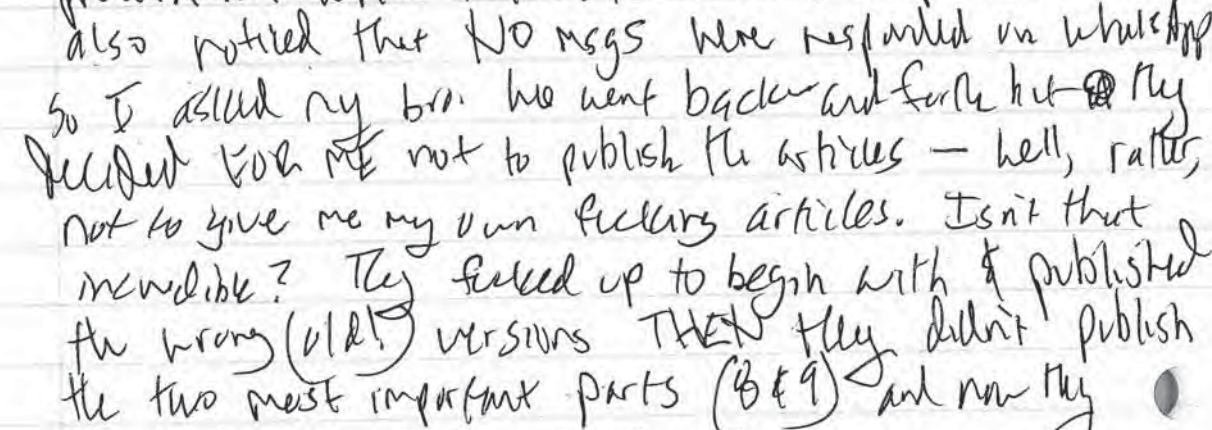 also noticed that NO msgs were responded on WhatsApp
So I asked my bro. We went back and forth but they
decided FOR ME not to publish the articles — well, rather,
not to give me my own fucking articles. Isn't that
incredible? They fucked up to begin with & published
the wrong (old!) versions THEN they didn't publish
the two most important parts (8 & 9) and now they